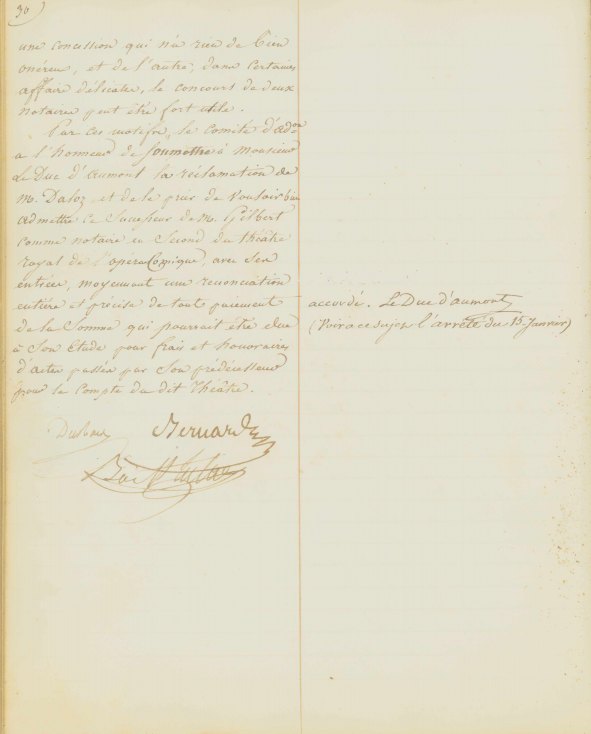 30
une concession qui n'a rien de bien
onéreux, et de l'autre, dans certaines
affaire délicates, le concours de deux
notaires peut être fort utile.
Par ces motifs, le comité d'adon
a l'honneur de soumettre à Monsieur
Le Duc d'aumont la réclamation de
M. Daloz et de le prier de vouloir bien
admettre ce Successeur de M. Gilbert
comme notaire en Second du théâtre
royal de l'opera Comique, avec Ses
entrées, moyennant une renonciation
entière et précise de tout paiement
de la Somme qui pourrait être due
à Son Etude pour frais et honoraires
d'actes passés par Son prédécesseur
pour le Compte du dit Théâtre.
accordé. Le Duc d'aumont
(Voir à ce sujet l'arrêté du 15 Janvier)
Bernard